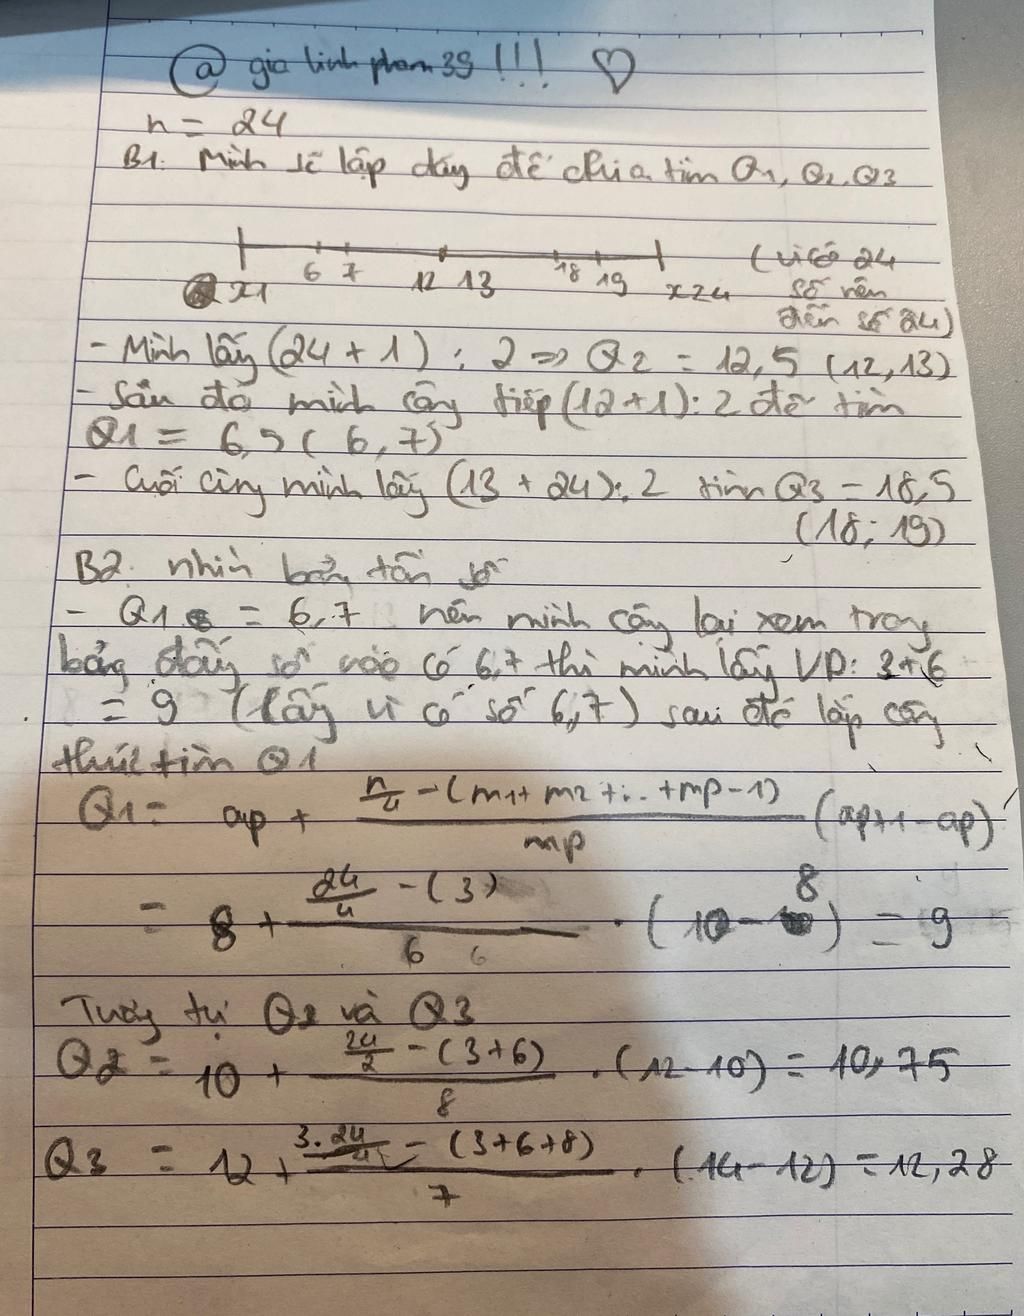 @ gia linh pham 39 !!! ♡
n = 24
B1. Mình sẽ lập dãy để chia tìm Q1, Q2, Q3
6 7 12 13 18 19
x1 x24
(vì có 24
số nên
đến số 24)
- Mình lấy (24 + 1) : 2 => Q2 = 12,5 (12,13)
- Sau đó mình cộng tiếp (12+1) : 2 để tìm
Q1 = 6,5 ( 6, 7)
- Cuối cùng mình lấy (13 + 24) : 2 tìm Q3 = 18,5
(18; 19)
B2. nhìn bảng tần số
- Q1 = 6,7 nên mình cộng lại xem trong
bảng dãy số nào có 6,7 thì mình lấy VD: 3+6
= 9 (lấy vì có số 6,7) sau đó lập công
thức tìm Q1
Q1 = ap + n/4 - (m1 + m2 + ... + mp-1) / mp (ap+1 - ap)
= 8 + 24/4 - (3) / 6 6 . (10 - 8) = 9
Tương tự Q2 và Q3
Q2 = 10 + 24/2 - (3+6) / 8 . (12-10) = 10,75
Q3 = 12 + 3.24/4 - (3+6+8) / 7 . (14-12) = 12,28